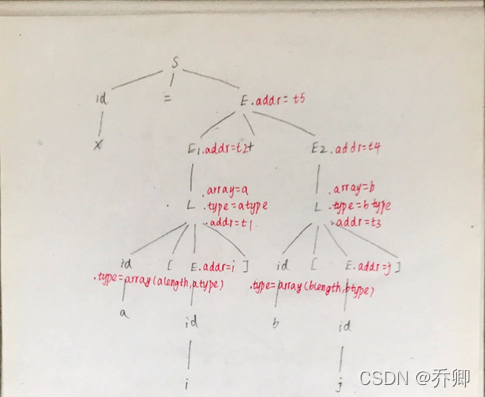 S
id = E.addr=t5
x E1.addr=t2+ E2.addr=t4
.array=a .array=b
L .type=atype L .type=btype
.addr=t1 .addr=t3
id [ E.addr=i ] id [ E.addr=j ]
.type=array(alength,atype) .type=array(blength,btype)
a id b id
i j
CSDN @乔卿